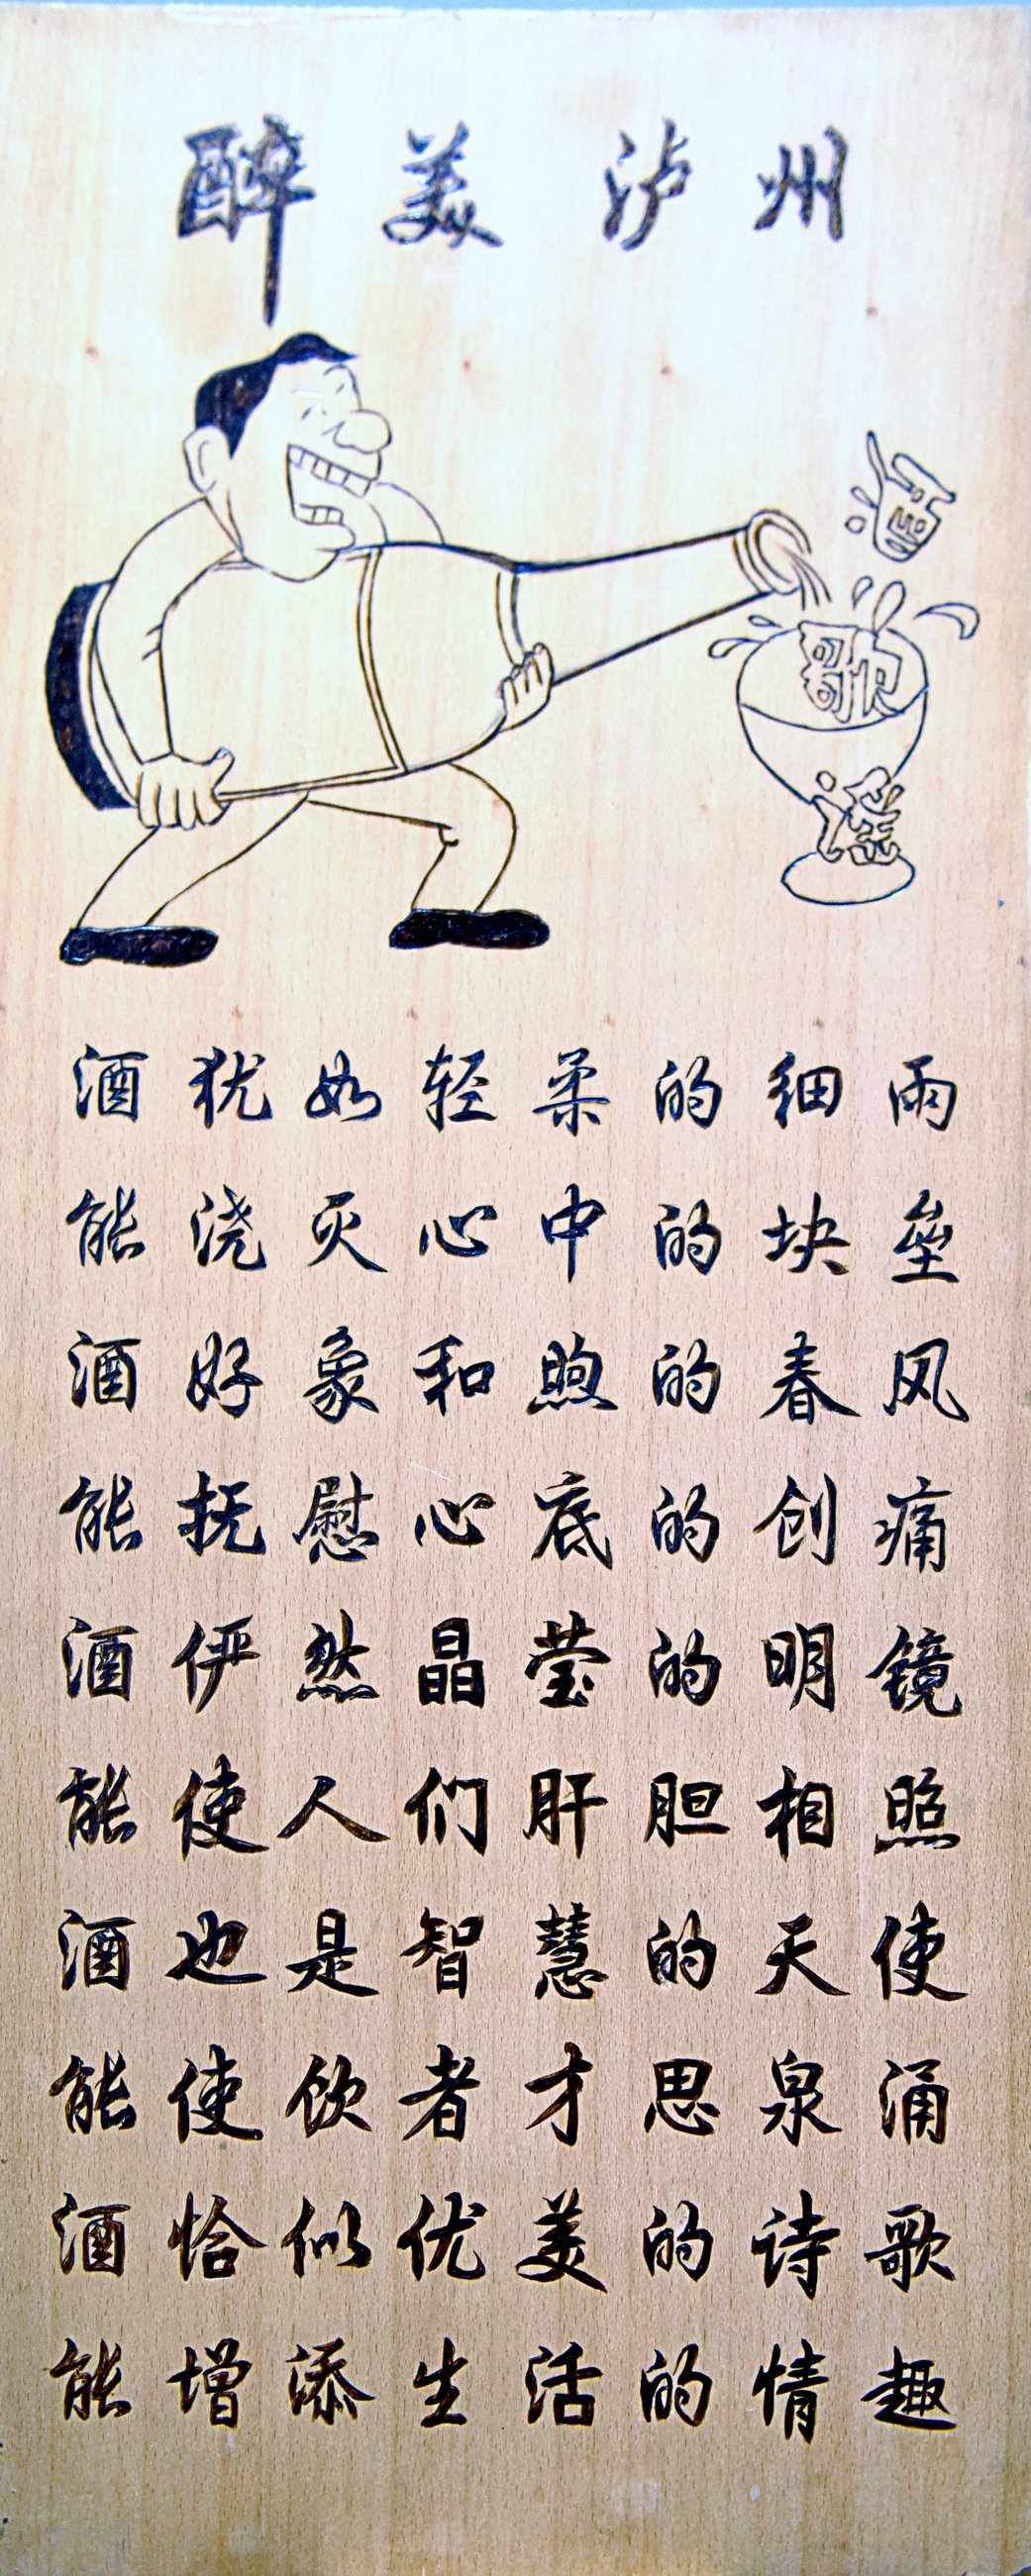 醉美泸州
酒
歌
谣
酒犹如轻柔的细雨
能浇灭心中的块垒
酒好象和煦的春风
能抚慰心底的创痛
酒俨然晶莹的明镜
能使人们肝胆相照
酒也是智慧的天使
能使饮者才思泉涌
酒恰似优美的诗歌
能增添生活的情趣